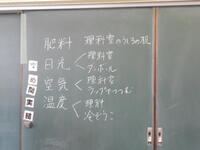 肥料 理科室のうしろの
日光 理科室
ダンボール
空気 理科室
ラップでつつむ
温度
冷ぞうこ